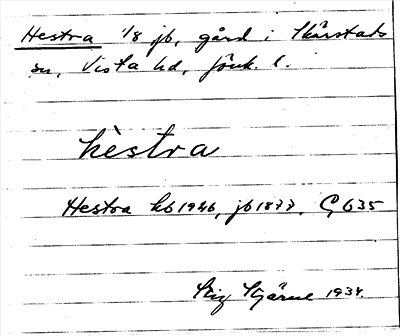 Hestra 1/8 jb, gård i Skärstads
sn, Vista hd, Jönk. l.
hèstra
Hestra kb 1946, jb 1877. G 635
Stig Stjärne 1934.